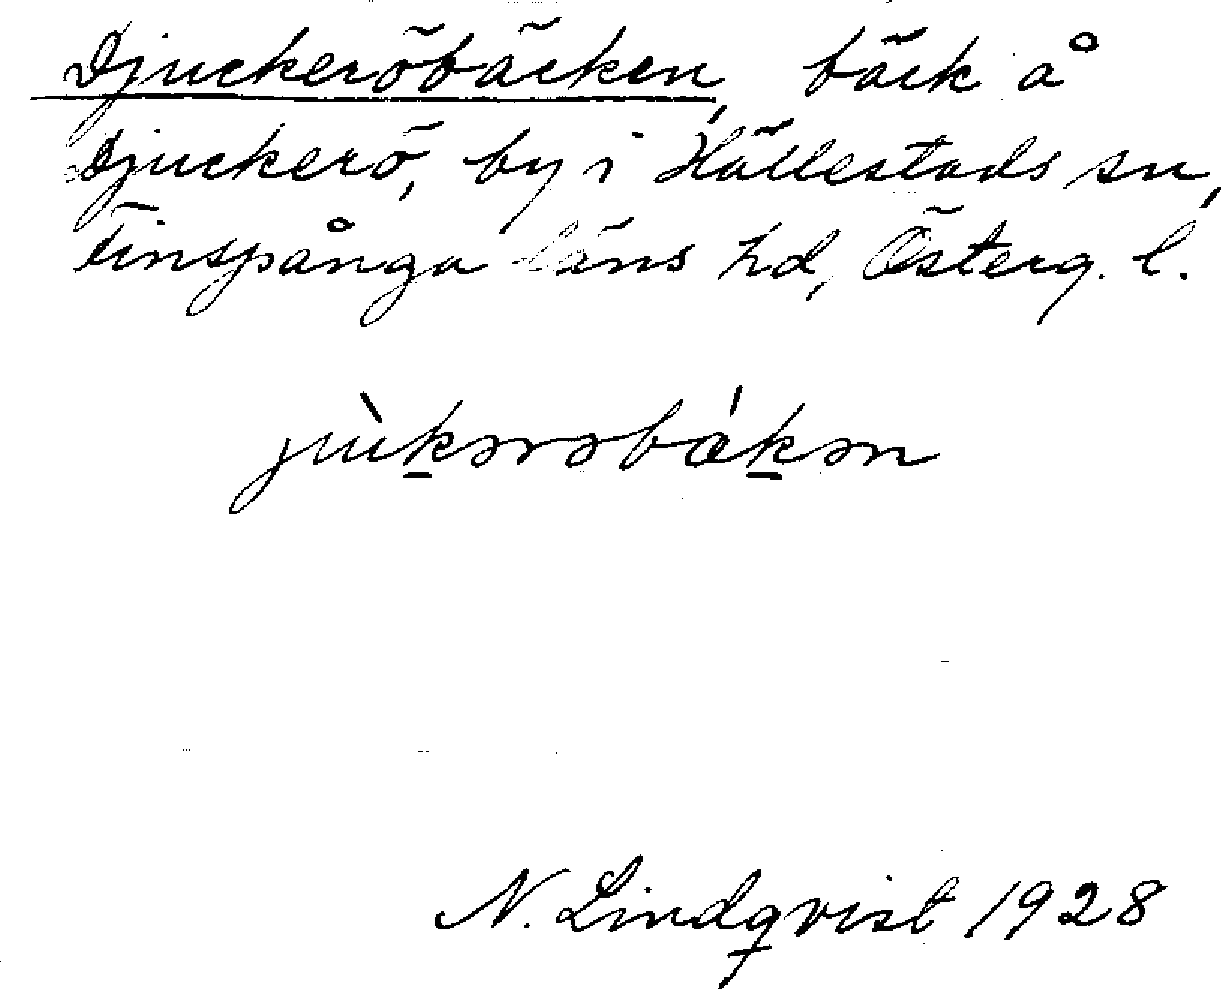 Djuckeröbäcken, bäck å
Djuckerö, by i Hällestads sn,
Finspånga läns hd, Österg. l.
jùk̲ərəbák̲ən
N. Lindqvist 1928